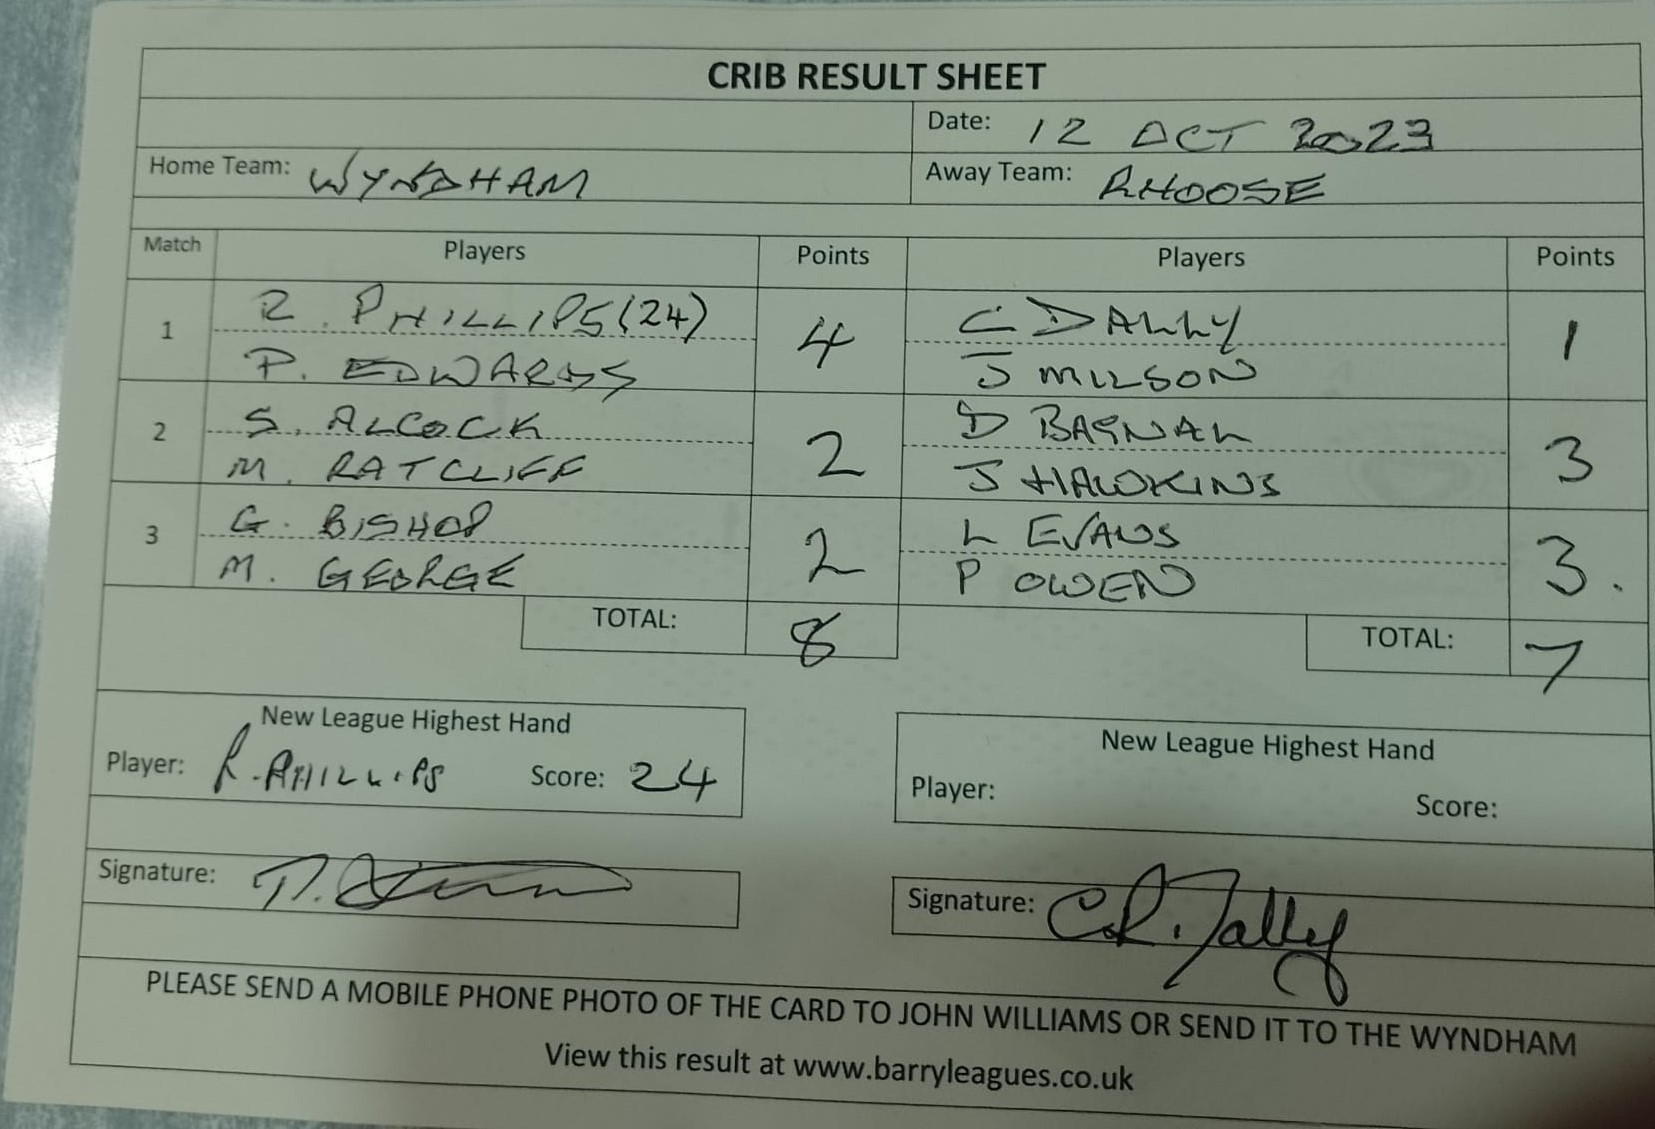 CRIB RESULT SHEET
Date: 12 OCT 2023
Home Team: WYNDHAM
Away Team: RHOOSE
Match Players Points Players Points
1
R. PHILLIPS (24)
P. EDWARDS
4
C DALLY
J MILSON
1
2
S. ALCOCK
M. RATCLIFF
2
D BAGNAL
J HAWKINS
3
3
G. BISHOP
M. GEORGE
2
L EVANS
P OWEN
3.
TOTAL: 8
TOTAL: 7
New League Highest Hand
Player: R. PHILLIPS Score: 24
New League Highest Hand
Player: Score:
Signature:
Signature: C.R. Dally
PLEASE SEND A MOBILE PHONE PHOTO OF THE CARD TO JOHN WILLIAMS OR SEND IT TO THE WYNDHAM
View this result at www.barryleagues.co.uk